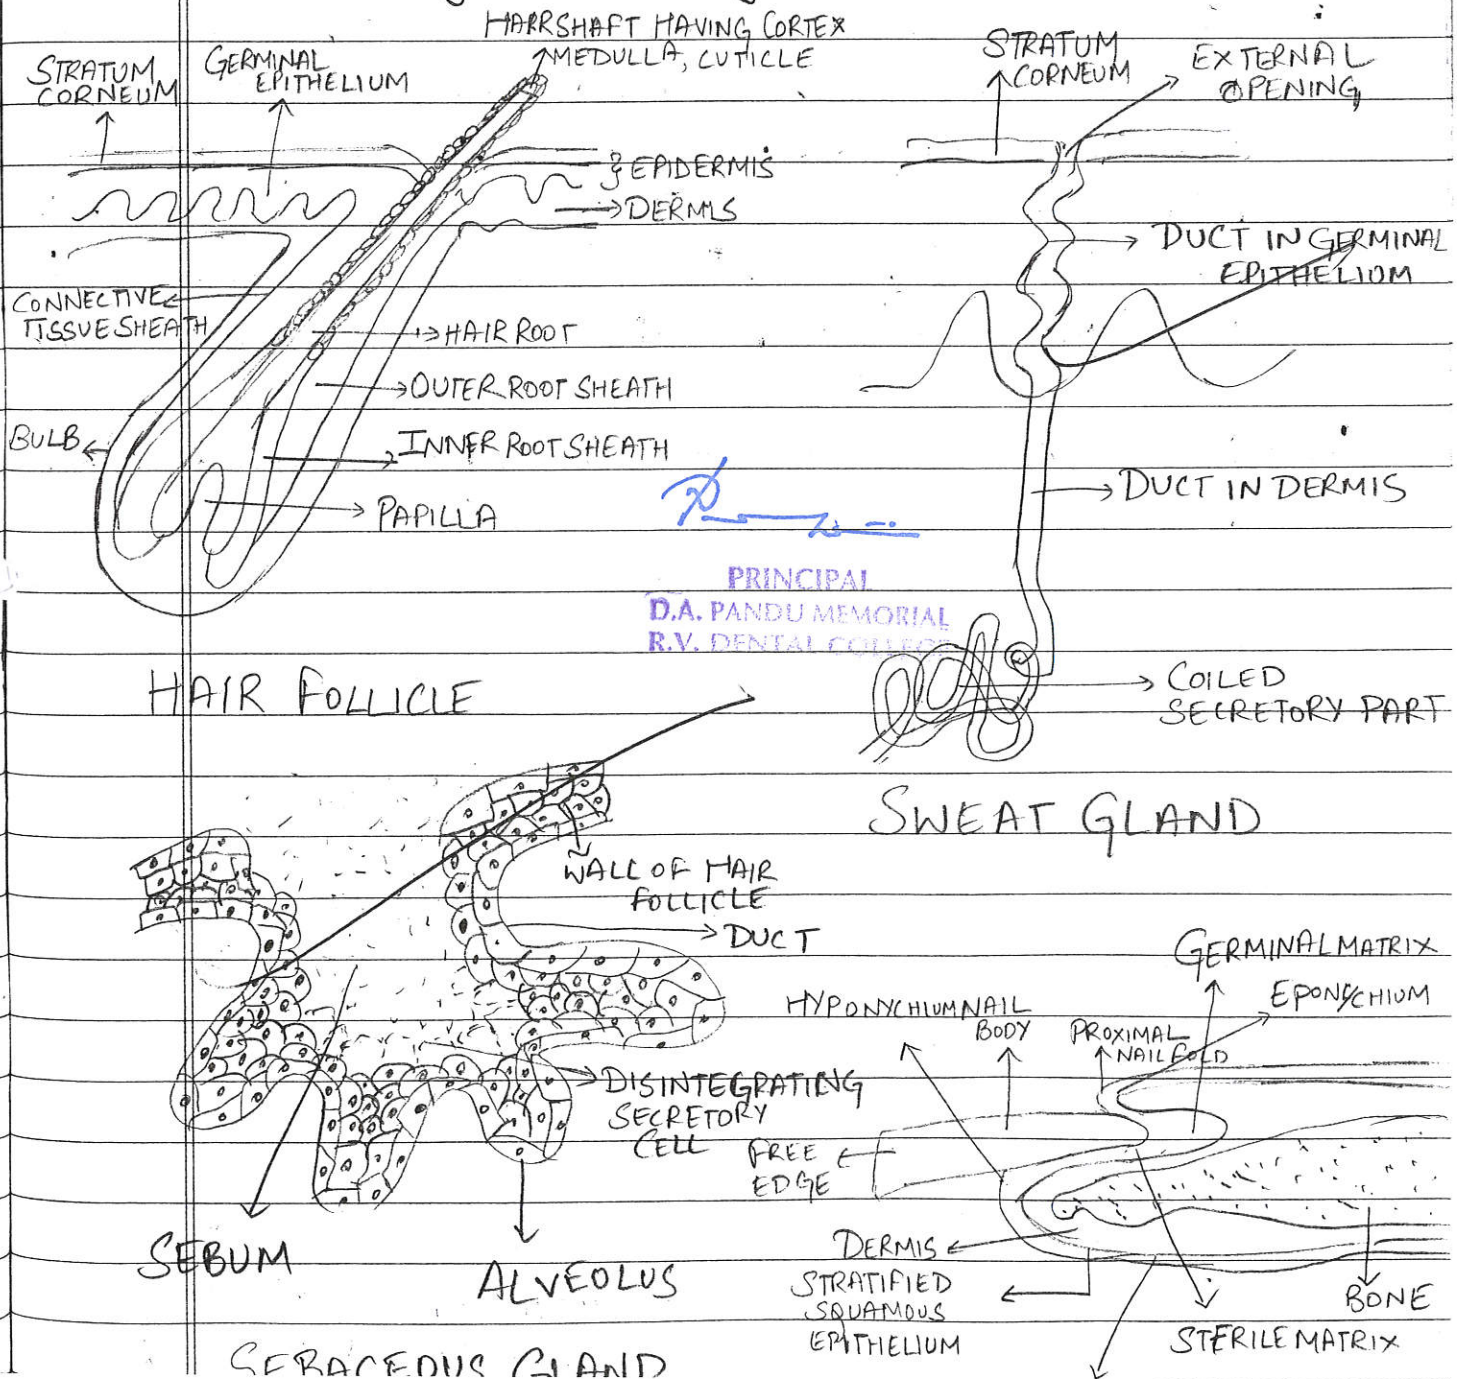 HAIRSHAFT HAVING CORTEX
MEDULLA, CUTICLE
STRATUM
CORNEUM
GERMINAL
EPITHELIUM
EPIDERMIS
DERMIS
CONNECTIVE
TISSUE SHEATH
HAIR ROOT
OUTER ROOT SHEATH
BULB
INNER ROOT SHEATH
PAPILLA
HAIR FOLLICLE
STRATUM
CORNEUM
EXTERNAL
OPENING
DUCT IN GERMINAL
EPITHELIUM
DUCT IN DERMIS
COILED
SECRETORY PART
SWEAT GLAND
PRINCIPAL
D.A. PANDU MEMORIAL
R.V. DENTAL COLLEGE
WALL OF HAIR
FOLLICLE
DUCT
DISINTEGRATING
SECRETORY
CELL
SEBUM
ALVEOLUS
SEBACEOUS GLAND
GERMINAL MATRIX
EPONYCHIUM
HYPONYCHIUM
NAIL
BODY
PROXIMAL
NAIL FOLD
FREE
EDGE
DERMIS
STRATIFIED
SQUAMOUS
EPITHELIUM
BONE
STERILE MATRIX